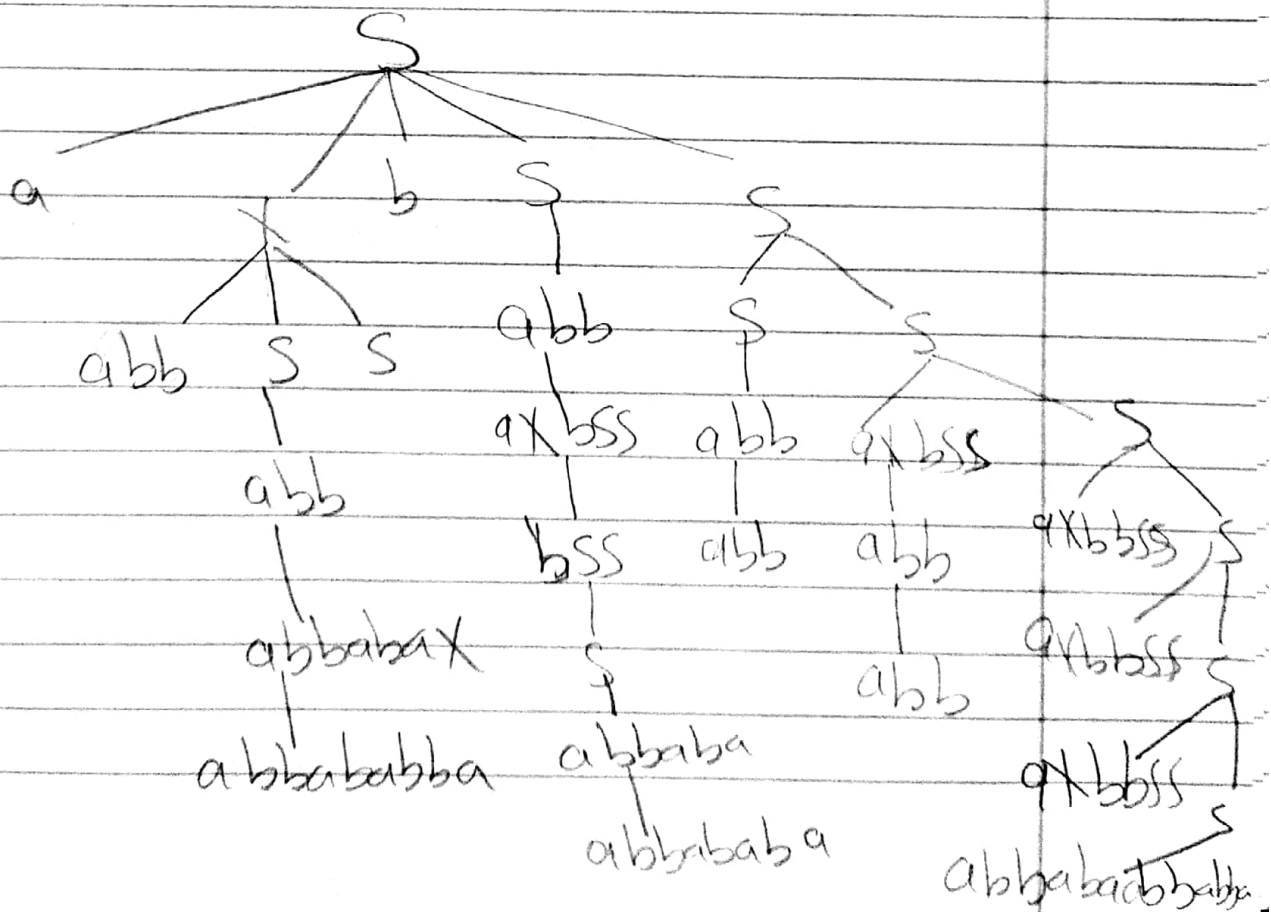 S
a X b S S
abb S S abb S S
abb axbss abb axbss S
abb bss abb abb axbbss S
abbabax S abb axbbss S
abbababba abbaba axbbss S
abbababa